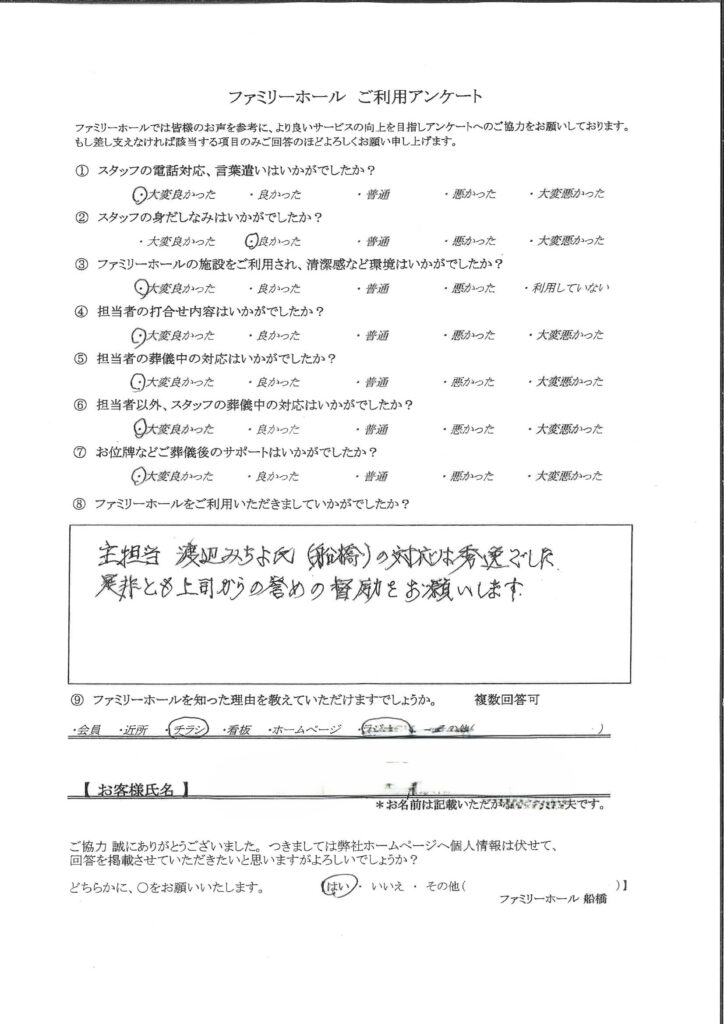 ファミリーホール ご利用アンケート
ファミリーホールでは皆様のお声を参考に、より良いサービスの向上を目指しアンケートへのご協力をお願いしております。
もし差し支えなければ該当する項目のみご回答のほどよろしくお願い申し上げます。
① スタッフの電話対応、言葉遣いはいかがでしたか？
・大変良かった ・良かった ・普通 ・悪かった ・大変悪かった
② スタッフの身だしなみはいかがでしたか？
・大変良かった ・良かった ・普通 ・悪かった ・大変悪かった
③ ファミリーホールの施設をご利用され、清潔感など環境はいかがでしたか？
・大変良かった ・良かった ・普通 ・悪かった ・利用していない
④ 担当者の打合せ内容はいかがでしたか？
・大変良かった ・良かった ・普通 ・悪かった ・大変悪かった
⑤ 担当者の葬儀中の対応はいかがでしたか？
・大変良かった ・良かった ・普通 ・悪かった ・大変悪かった
⑥ 担当者以外、スタッフの葬儀中の対応はいかがでしたか？
・大変良かった ・良かった ・普通 ・悪かった ・大変悪かった
⑦ お位牌などご葬儀後のサポートはいかがでしたか？
・大変良かった ・良かった ・普通 ・悪かった ・大変悪かった
⑧ ファミリーホールをご利用いただきましていかがでしたか？
主担当 渡辺みちよ氏（船橋）の対応は秀逸でした
是非とも上司からの誉めの督励をお願いします
⑨ ファミリーホールを知った理由を教えていただけますでしょうか。 複数回答可
・会員 ・近所 ・チラシ ・看板 ・ホームページ ・その他( )
【 お客様氏名 】
＊お名前は記載いただか夫です。
ご協力 誠にありがとうございました。つきましては弊社ホームページへ個人情報は伏せて、
回答を掲載させていただきたいと思いますがよろしいでしょうか？
どちらかに、〇をお願いいたします。 はい ・ いいえ ・ その他( )】
ファミリーホール 船橋